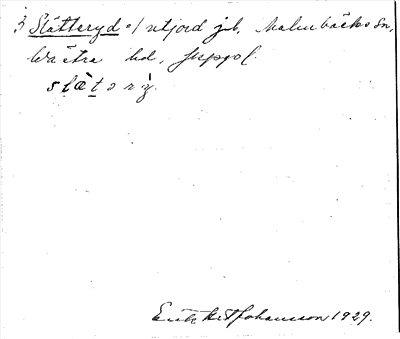 3 Slätteryd o/ utjord jb, Malmbäcks sn,
Västra hd, Jkppgl.
slὰtəry̆.
Erik Johansson 1929.